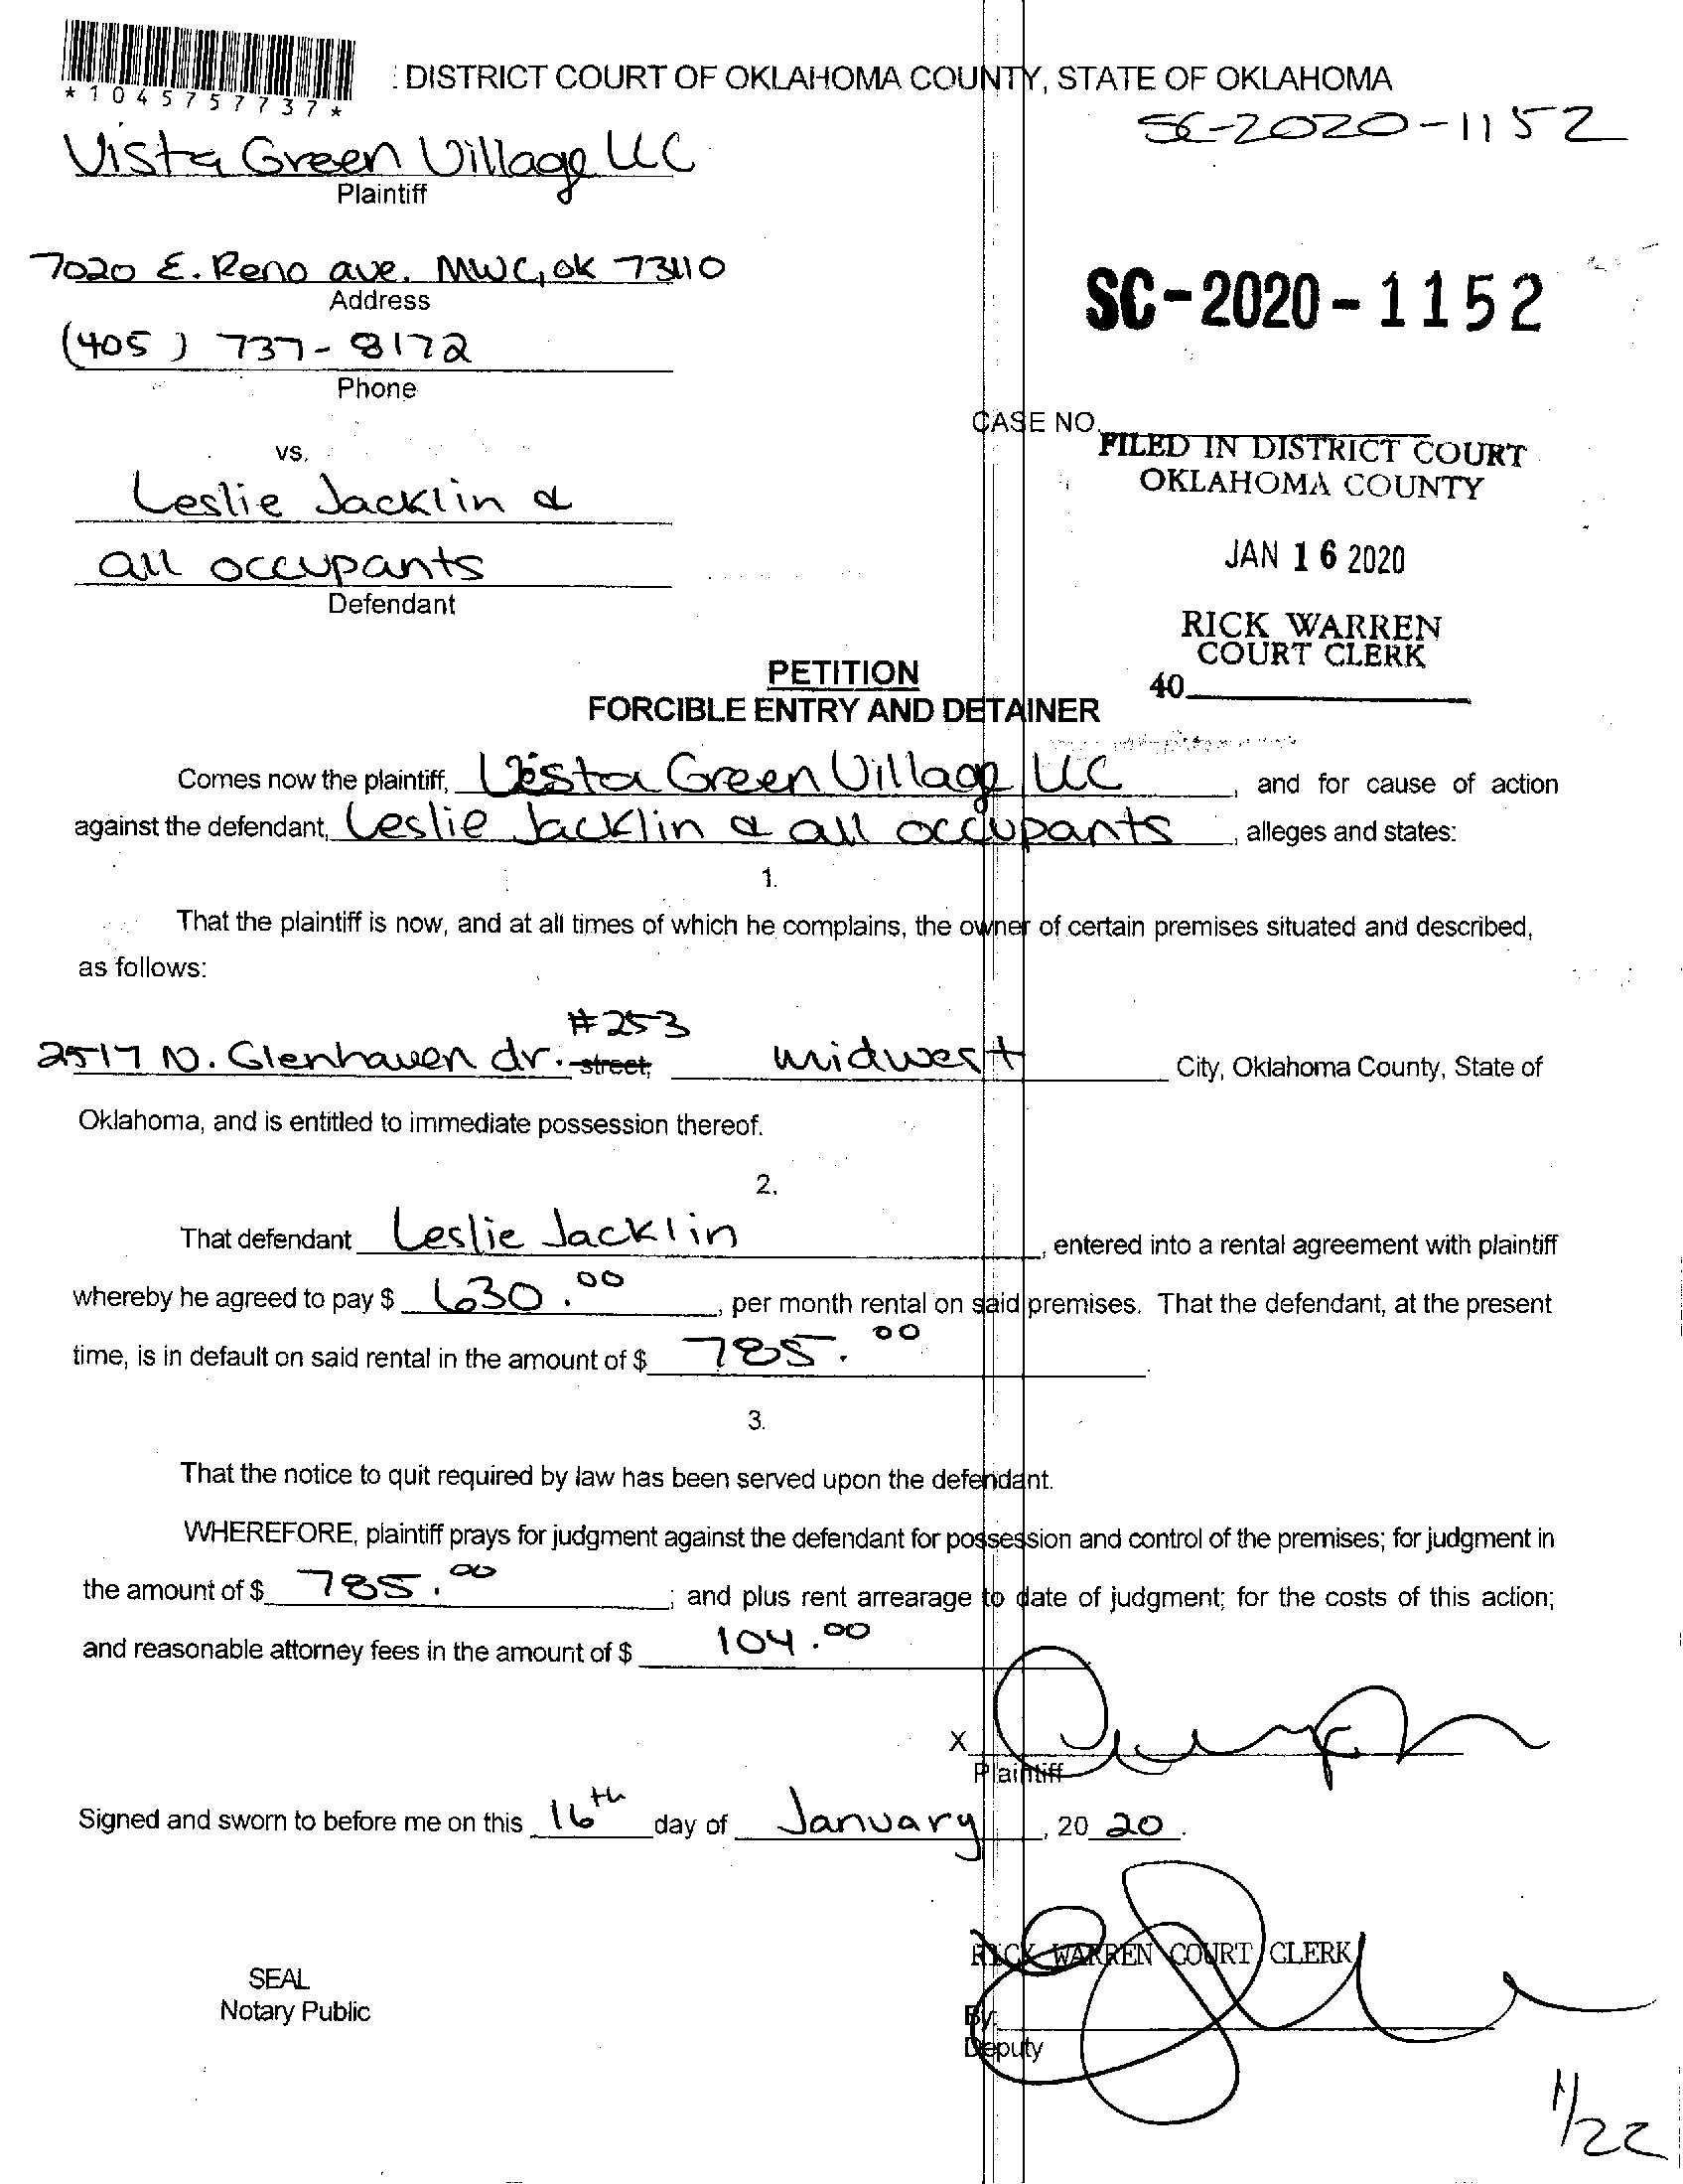 *1045757737*
: DISTRICT COURT OF OKLAHOMA COUNTY, STATE OF OKLAHOMA
SC-2020-1152
Vista Green Village LLC
Plaintiff
7020 E. Reno ave. MWC, OK 73110
Address
SC-2020-1152
(405) 737-8172
Phone
CASE NO.
FILED IN DISTRICT COURT
OKLAHOMA COUNTY
vs.
Leslie Jacklin &
all occupants
Defendant
JAN 16 2020
RICK WARREN
COURT CLERK
40
PETITION
FORCIBLE ENTRY AND DETAINER
Comes now the plaintiff, Vista Green Village LLC, and for cause of action
against the defendant, Leslie Jacklin & all occupants, alleges and states:
1.
That the plaintiff is now, and at all times of which he complains, the owner of certain premises situated and described,
as follows:
#253
2517 N. Glenhaven dr. street, midwest City, Oklahoma County, State of
Oklahoma, and is entitled to immediate possession thereof.
2.
That defendant Leslie Jacklin, entered into a rental agreement with plaintiff
whereby he agreed to pay $ 630.00, per month rental on said premises. That the defendant, at the present
time, is in default on said rental in the amount of $ 785.00.
3.
That the notice to quit required by law has been served upon the defendant.
WHEREFORE, plaintiff prays for judgment against the defendant for possession and control of the premises; for judgment in
the amount of $ 785.00; and plus rent arrearage to date of judgment; for the costs of this action;
and reasonable attorney fees in the amount of $ 104.00
X
Plaintiff
Signed and sworn to before me on this 16th day of January, 2020.
RICK WARREN COURT CLERK
SEAL
Notary Public
By:
Deputy
1/22